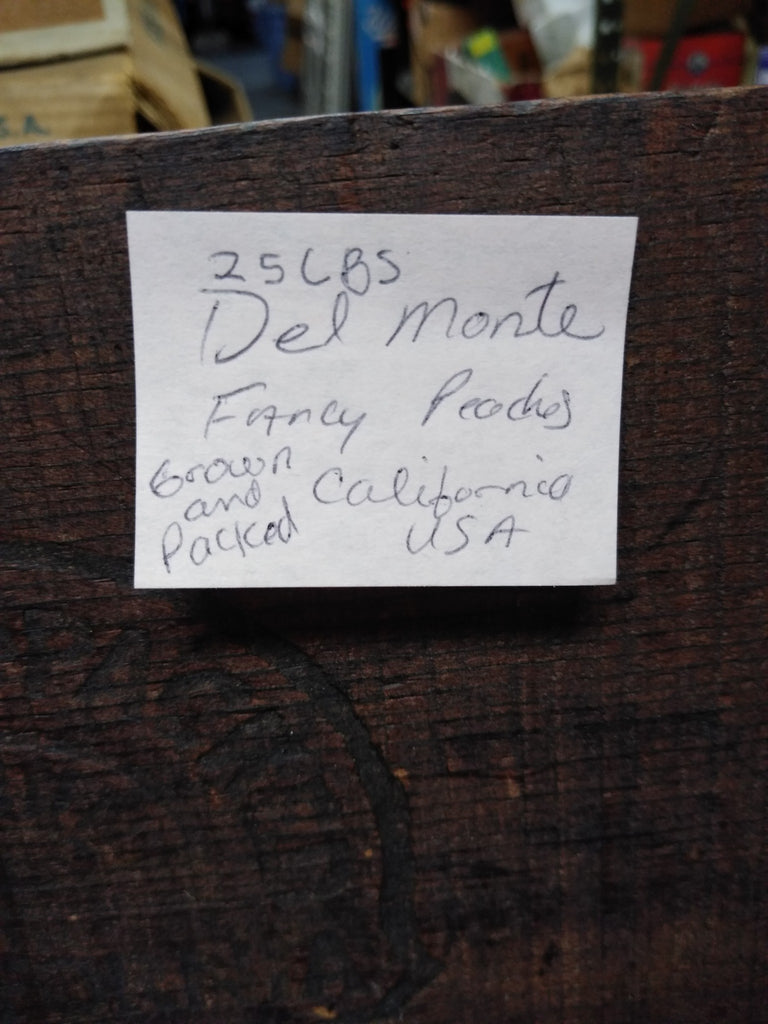 25 LBS
Del Monte
Fancy Peaches
Grown
and California
Packed USA